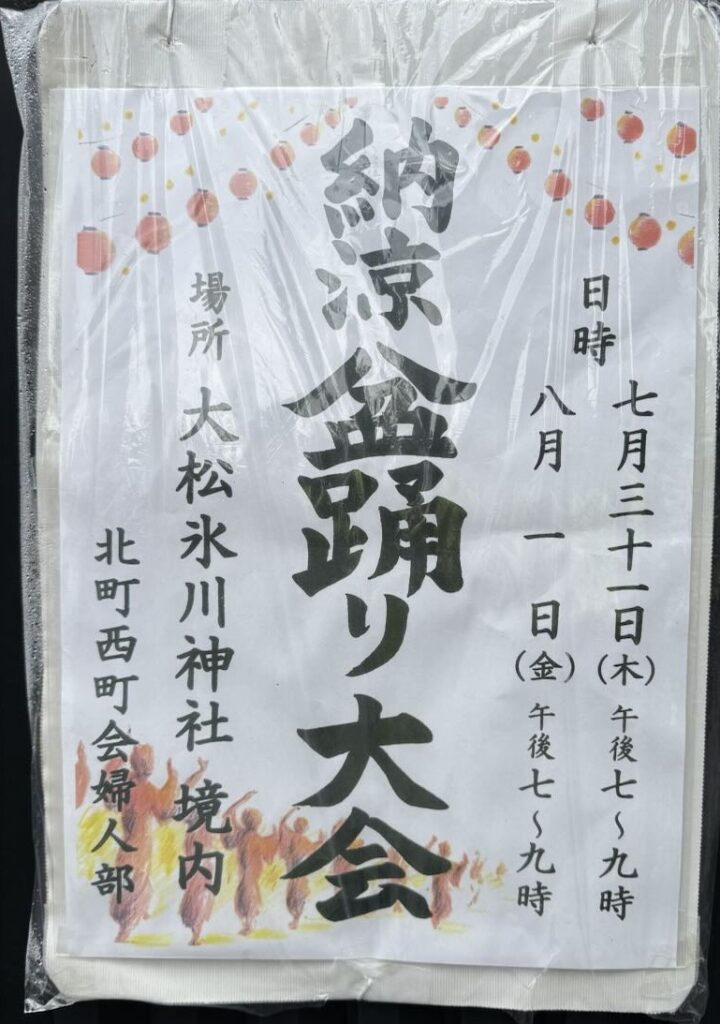 日時
七月三十一日(木)午後七〜九時
八月 一 日(金)午後七〜九時
納涼盆踊り大会
場所 大松氷川神社 境内
北町西町会婦人部